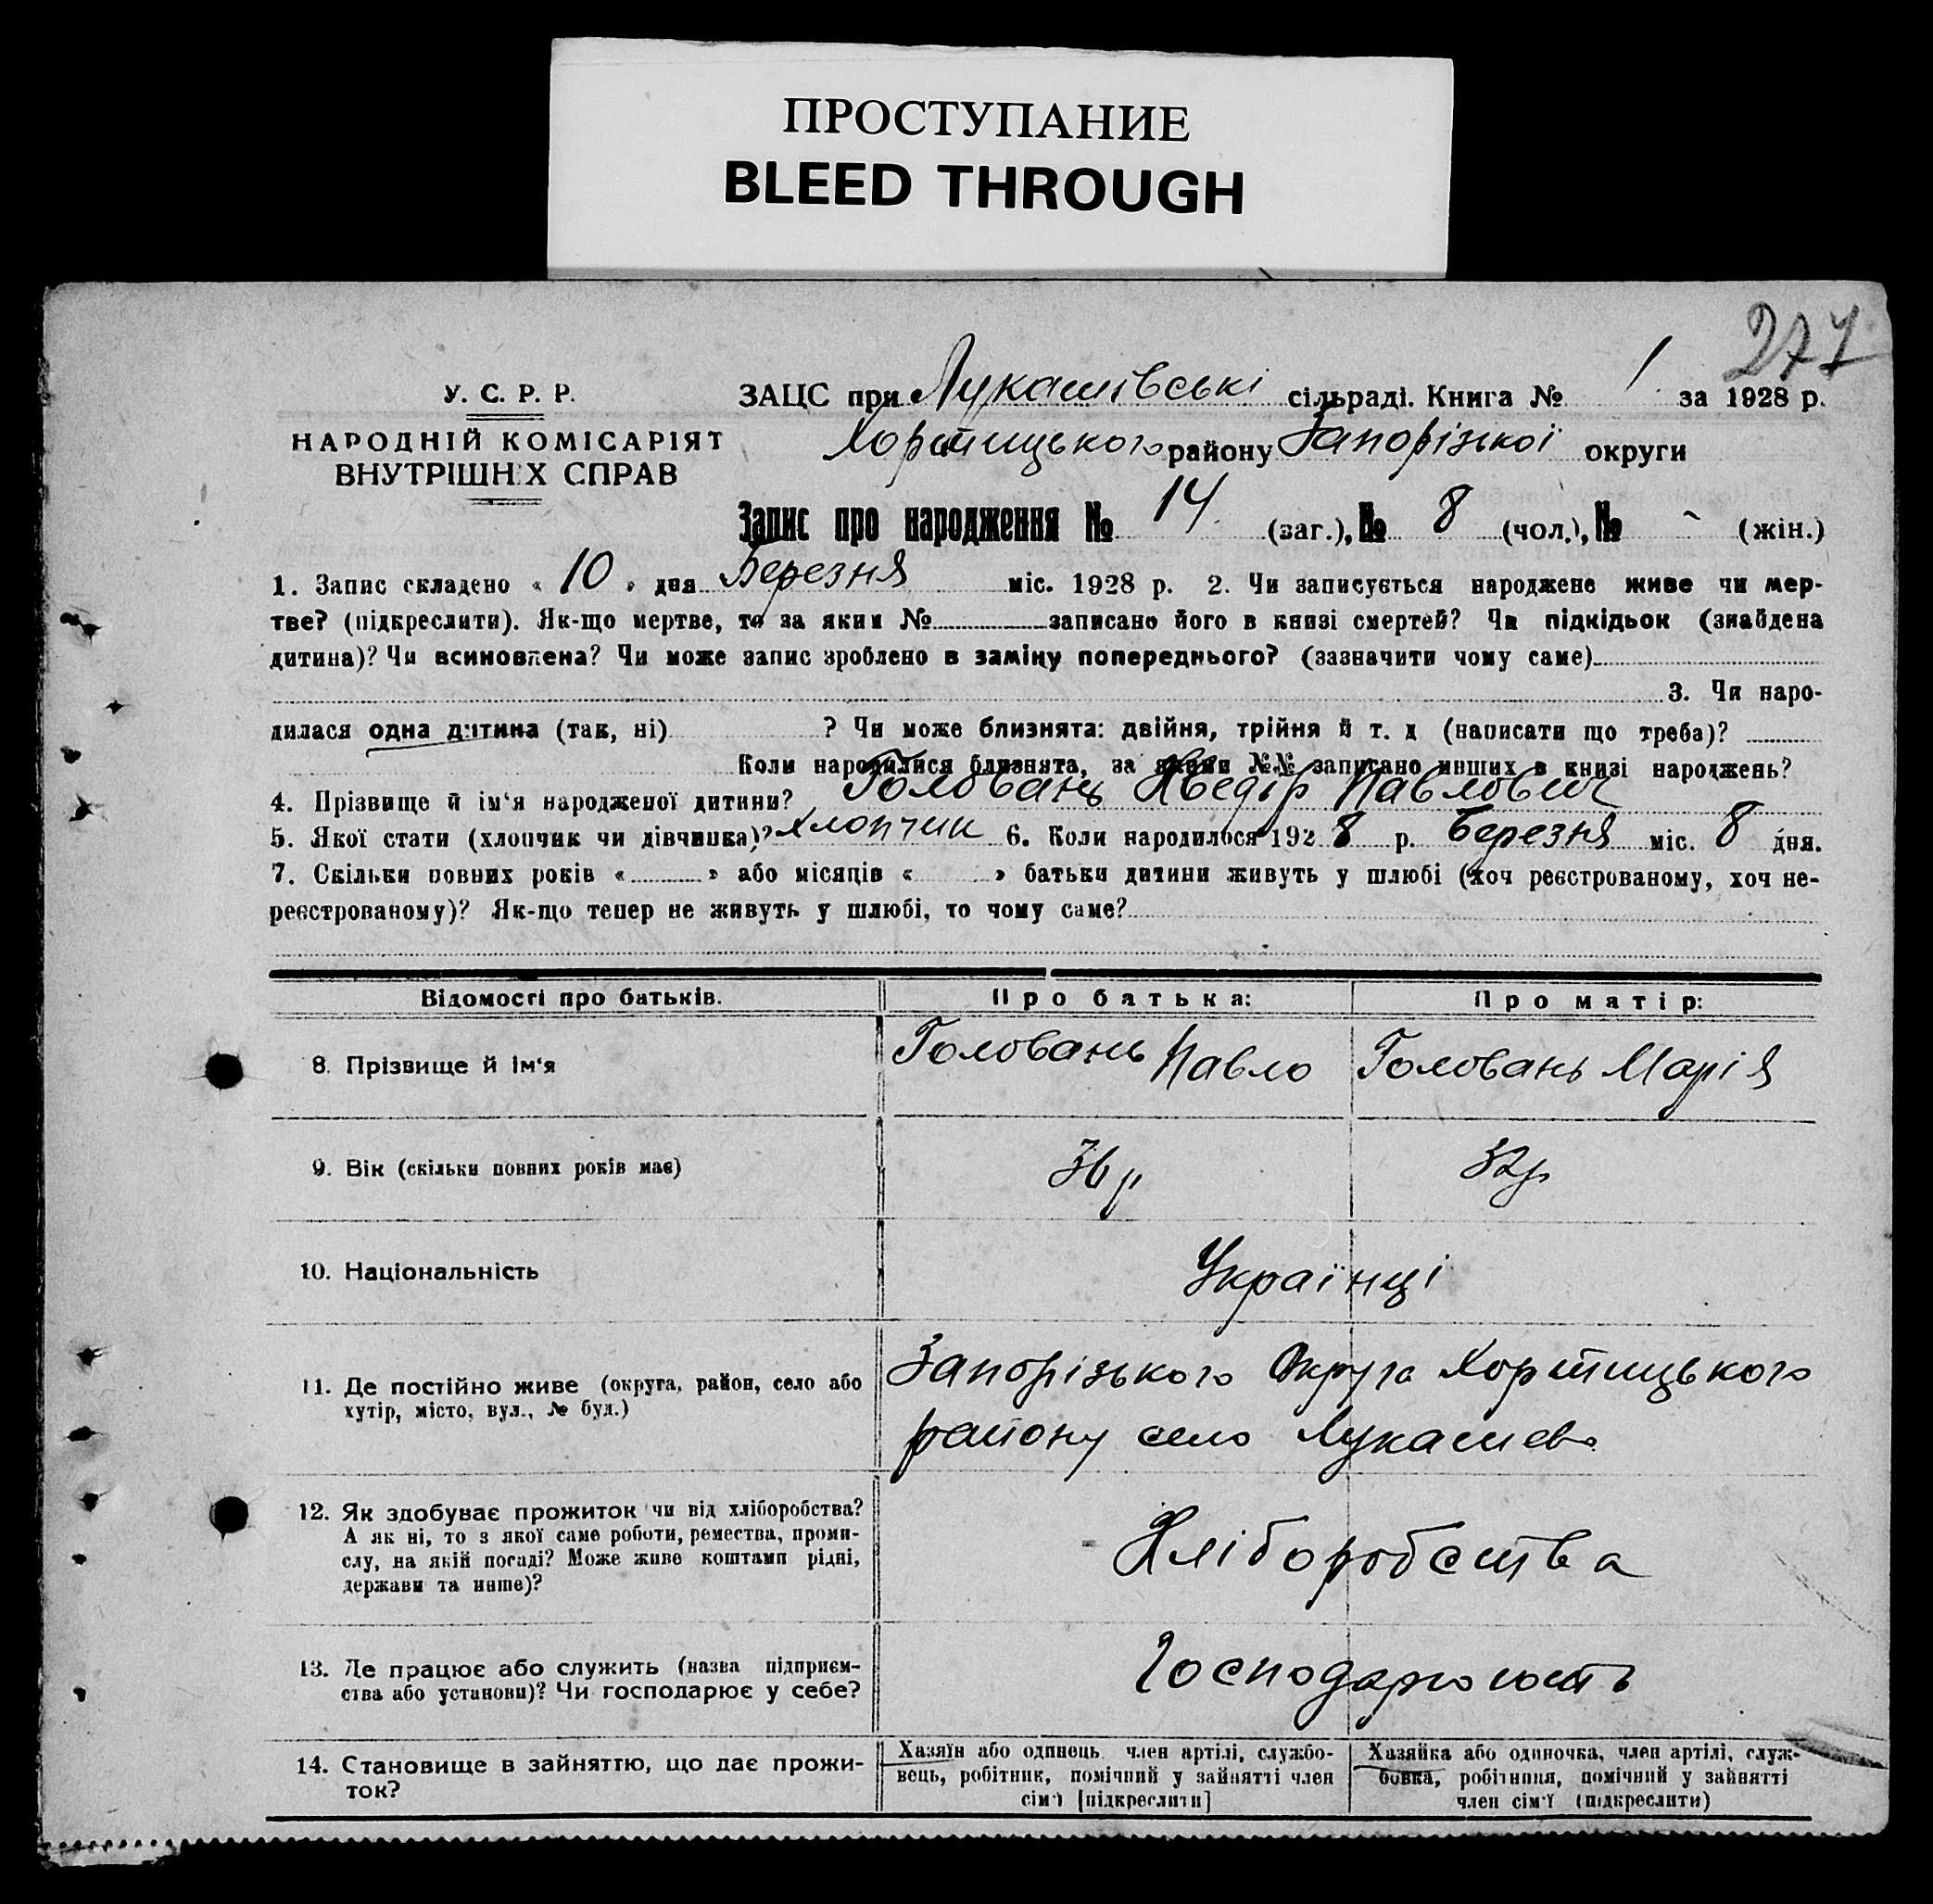 ПРОСТУПАНИЕ
BLEED THROUGH
277
У. С. Р. Р.
НАРОДНІЙ КОМІСАРІЯТ
ВНУТРІШН Х СПРАВ
ЗАЦС при Лукашівські сільраді. Книга № 1. за 1928 р.
Хортицького району Запорізької округи
Запис про народження № 14. (заг.), № 8 (чол.), № - (жін.)
1. Запис складено « 10 » дня Березня міс. 1928 р. 2. Чи записується народжене живе чи мер-
тве? (підкреслити). Як-що мертве, то за яким № записано його в книзі смертей? Чи підкідьок (знайдена
дитина)? Чи всиновлена? Чи може запис зроблено в заміну попереднього? (зазначити чому саме)
3. Чи наро-
дилася одна дитина (так, ні) ? Чи може близнята: двійня, трійня й т. д (написати що треба)?
Коли народилися близнята, за якими №№ записано инших в книзі народжень?
4. Прізвище й ім‘я народженої дитини? Головань Хведір Павлович
5. Якої стати (хлопчик чи дівчинка)? хлопчик 6. Коли народилося 192 8 р. Березня міс. 8 дня.
7. Скільки повних років « » або місяців « » батьки дитини живуть у шлюбі (хоч реєстрованому, хоч не-
реєстрованому)? Як-що тепер не живуть у шлюбі, то чому саме?
Відомості про батьків. Про батька: Про матір:
8. Прізвище й ім‘я Головань Павло Головань Марія
9. Вік (скільки повних років має) 36 р 32р
10. Національність Українці
11. Де постійно живе (округа, район, село або
хутір, місто, вул., № буд.)
Запорізького Округа Хортицького
району село Лукашево
12. Як здобуває прожиток чи від хліборобства?
А як ні, то з якої саме роботи, ремества, проми-
слу, на якій посаді? Може живе коштами рідні,
держави та инше)?
Хліборобства
13. Де працює або служить (назва підприєм-
ства або установи)? Чи господарює у себе?
Господарюють
14. Становище в зайняттю, що дає прожи-
ток?
Хазяїн або одинець, член артілі, службо-
вець, робітник, помічний у зайнятті член
сім‘ї [підкреслити]
Хазяйка або одиночка, член артілі, служ-
бовка, робітниця, помічний у зайнятті
член сім‘ї (підкреслити)